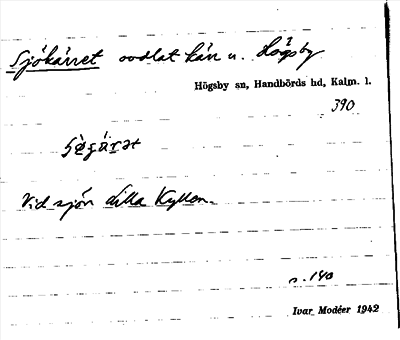 Sjökärret oodlat kärr u. Högsby
Högsby sn, Handbörds hd, Kalm. l.
390
Vid sjön Lilla Kyllen.
s. 140
Ivar Modéer 1942